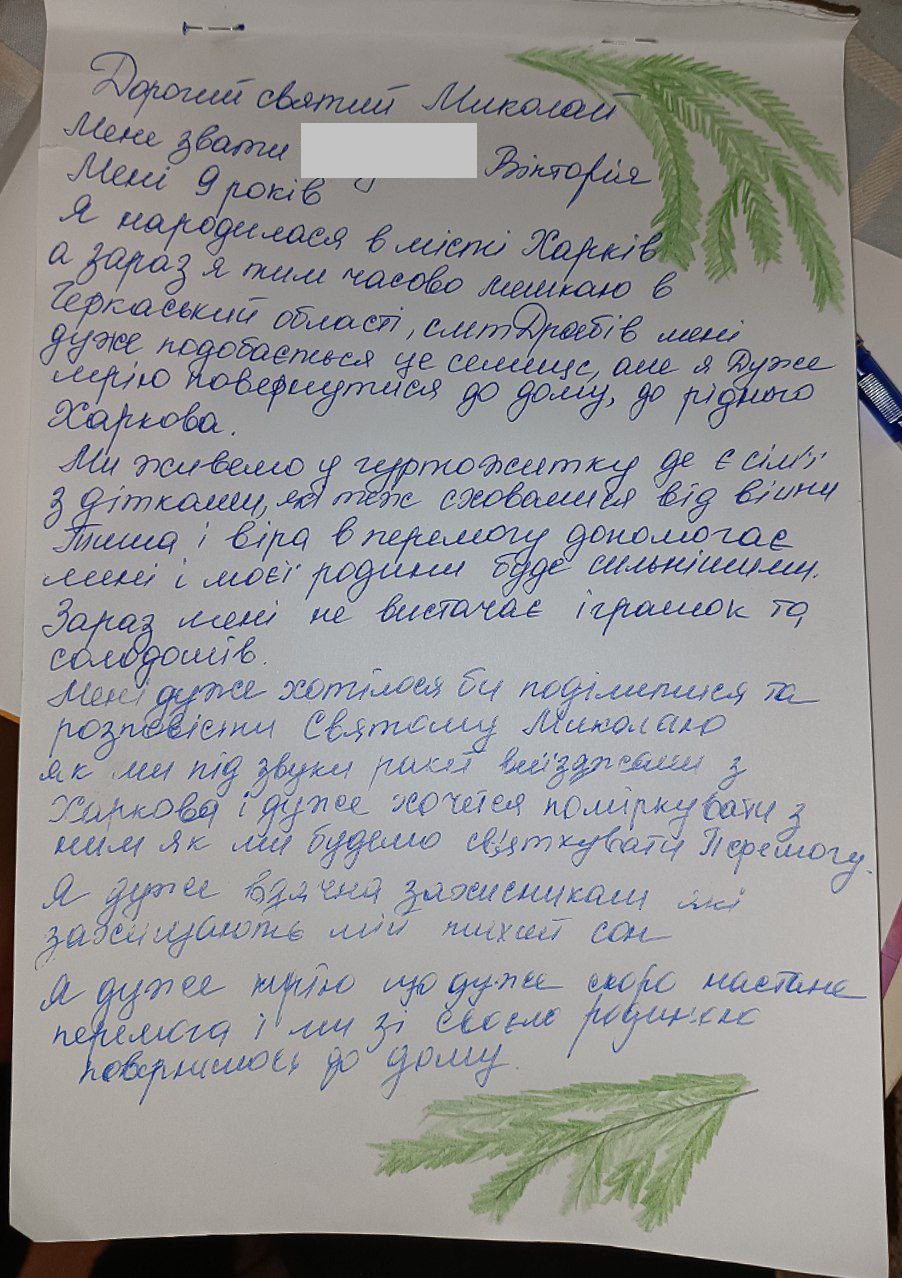 Дорогий святий Миколай
Мене звати Вікторія
Мені 9 років
Я народилася в місті Харків
а зараз я тим часово мешкаю в
Черкаський області, смт Драбів мені
дуже подобається це селище, але я дуже
мрію повернутися до дому, до рідного
Харкова.
Ми живемо у гуртожитку де є сім'ї
з дітками, які теж сховалися від війни
Тиша і віра в перемогу допомогає
мені і моєї родини буде сильнішими.
Зараз мені не вистачає іграшок та
солодощів.
Мені дуже хотілося би поділитися та
розповісти Святому Миколаю
як ми під звуки ракет виїзджали з
Харкова і дуже хочеться поміркувати з
ним як ми будемо святкувати Перемогу.
Я дуже вдячна захисникам які
захищають мій тихий сон
Я дуже мрію що дуже скоро настане
перемога і ми зі своєю родиною
повернимось до дому.